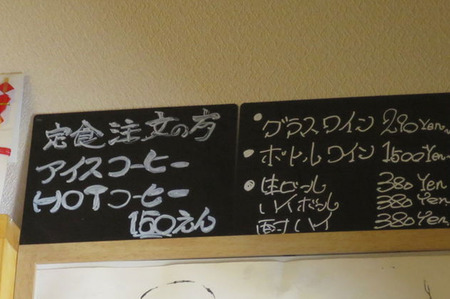 定食注文の方
アイスコーヒー
HOTコーヒー
150えん
・グラスワイン 290Yen
・ボトルワイン 1500Yen
・生ビール 380Yen
ハイボール 380Yen
酎ハイ 380Yen